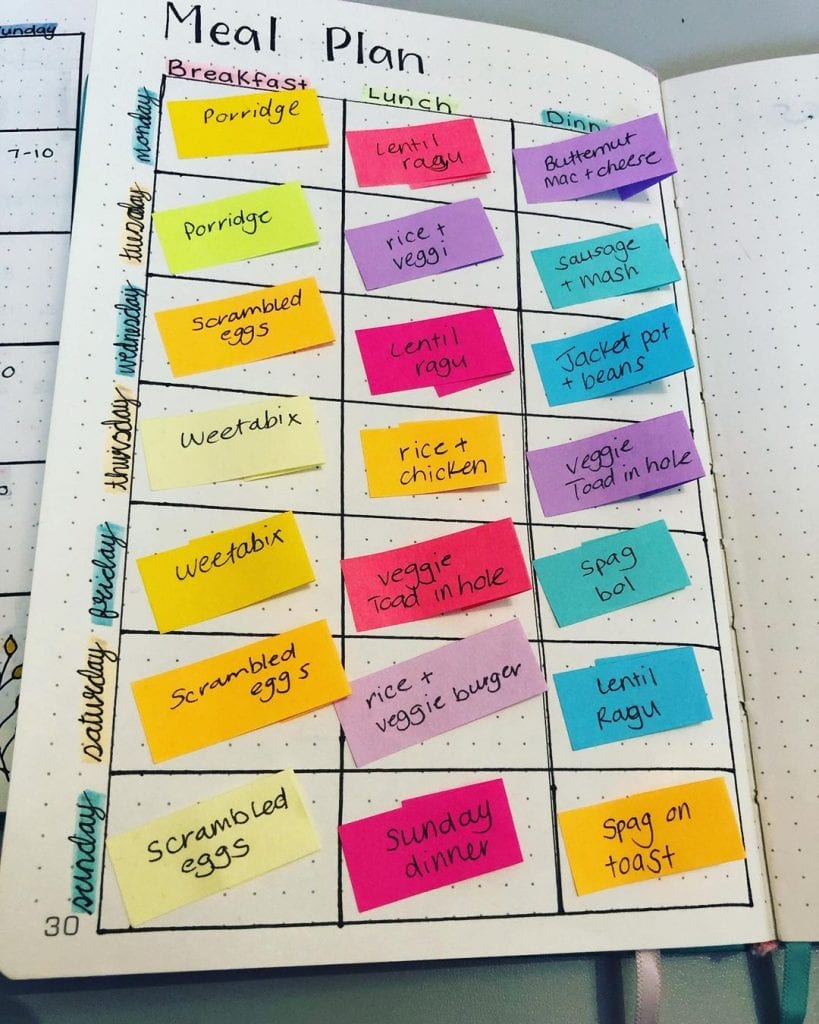 Sunday
7-10
Meal Plan
Breakfast
Lunch
Dinn
monday
Porridge
Lentil
ragu
Butternut
mac + cheese
tuesday
Porridge
rice +
veggi
sausage
+ mash
wednesday
Scrambled
eggs
Lentil
ragu
Jacket pot
+ beans
thursday
weetabix
rice +
chicken
veggie
Toad in hole
friday
weetabix
veggie
Toad in hole
spag
bol
saturday
Scrambled
eggs
rice +
veggie burger
Lentil
Ragu
sunday
Scrambled
eggs
Sunday
dinner
Spag on
toast
30